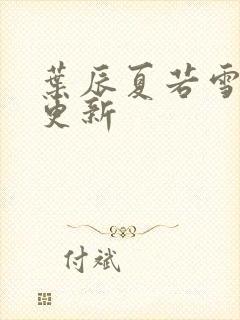 葉辰夏若雪
更新
付斌